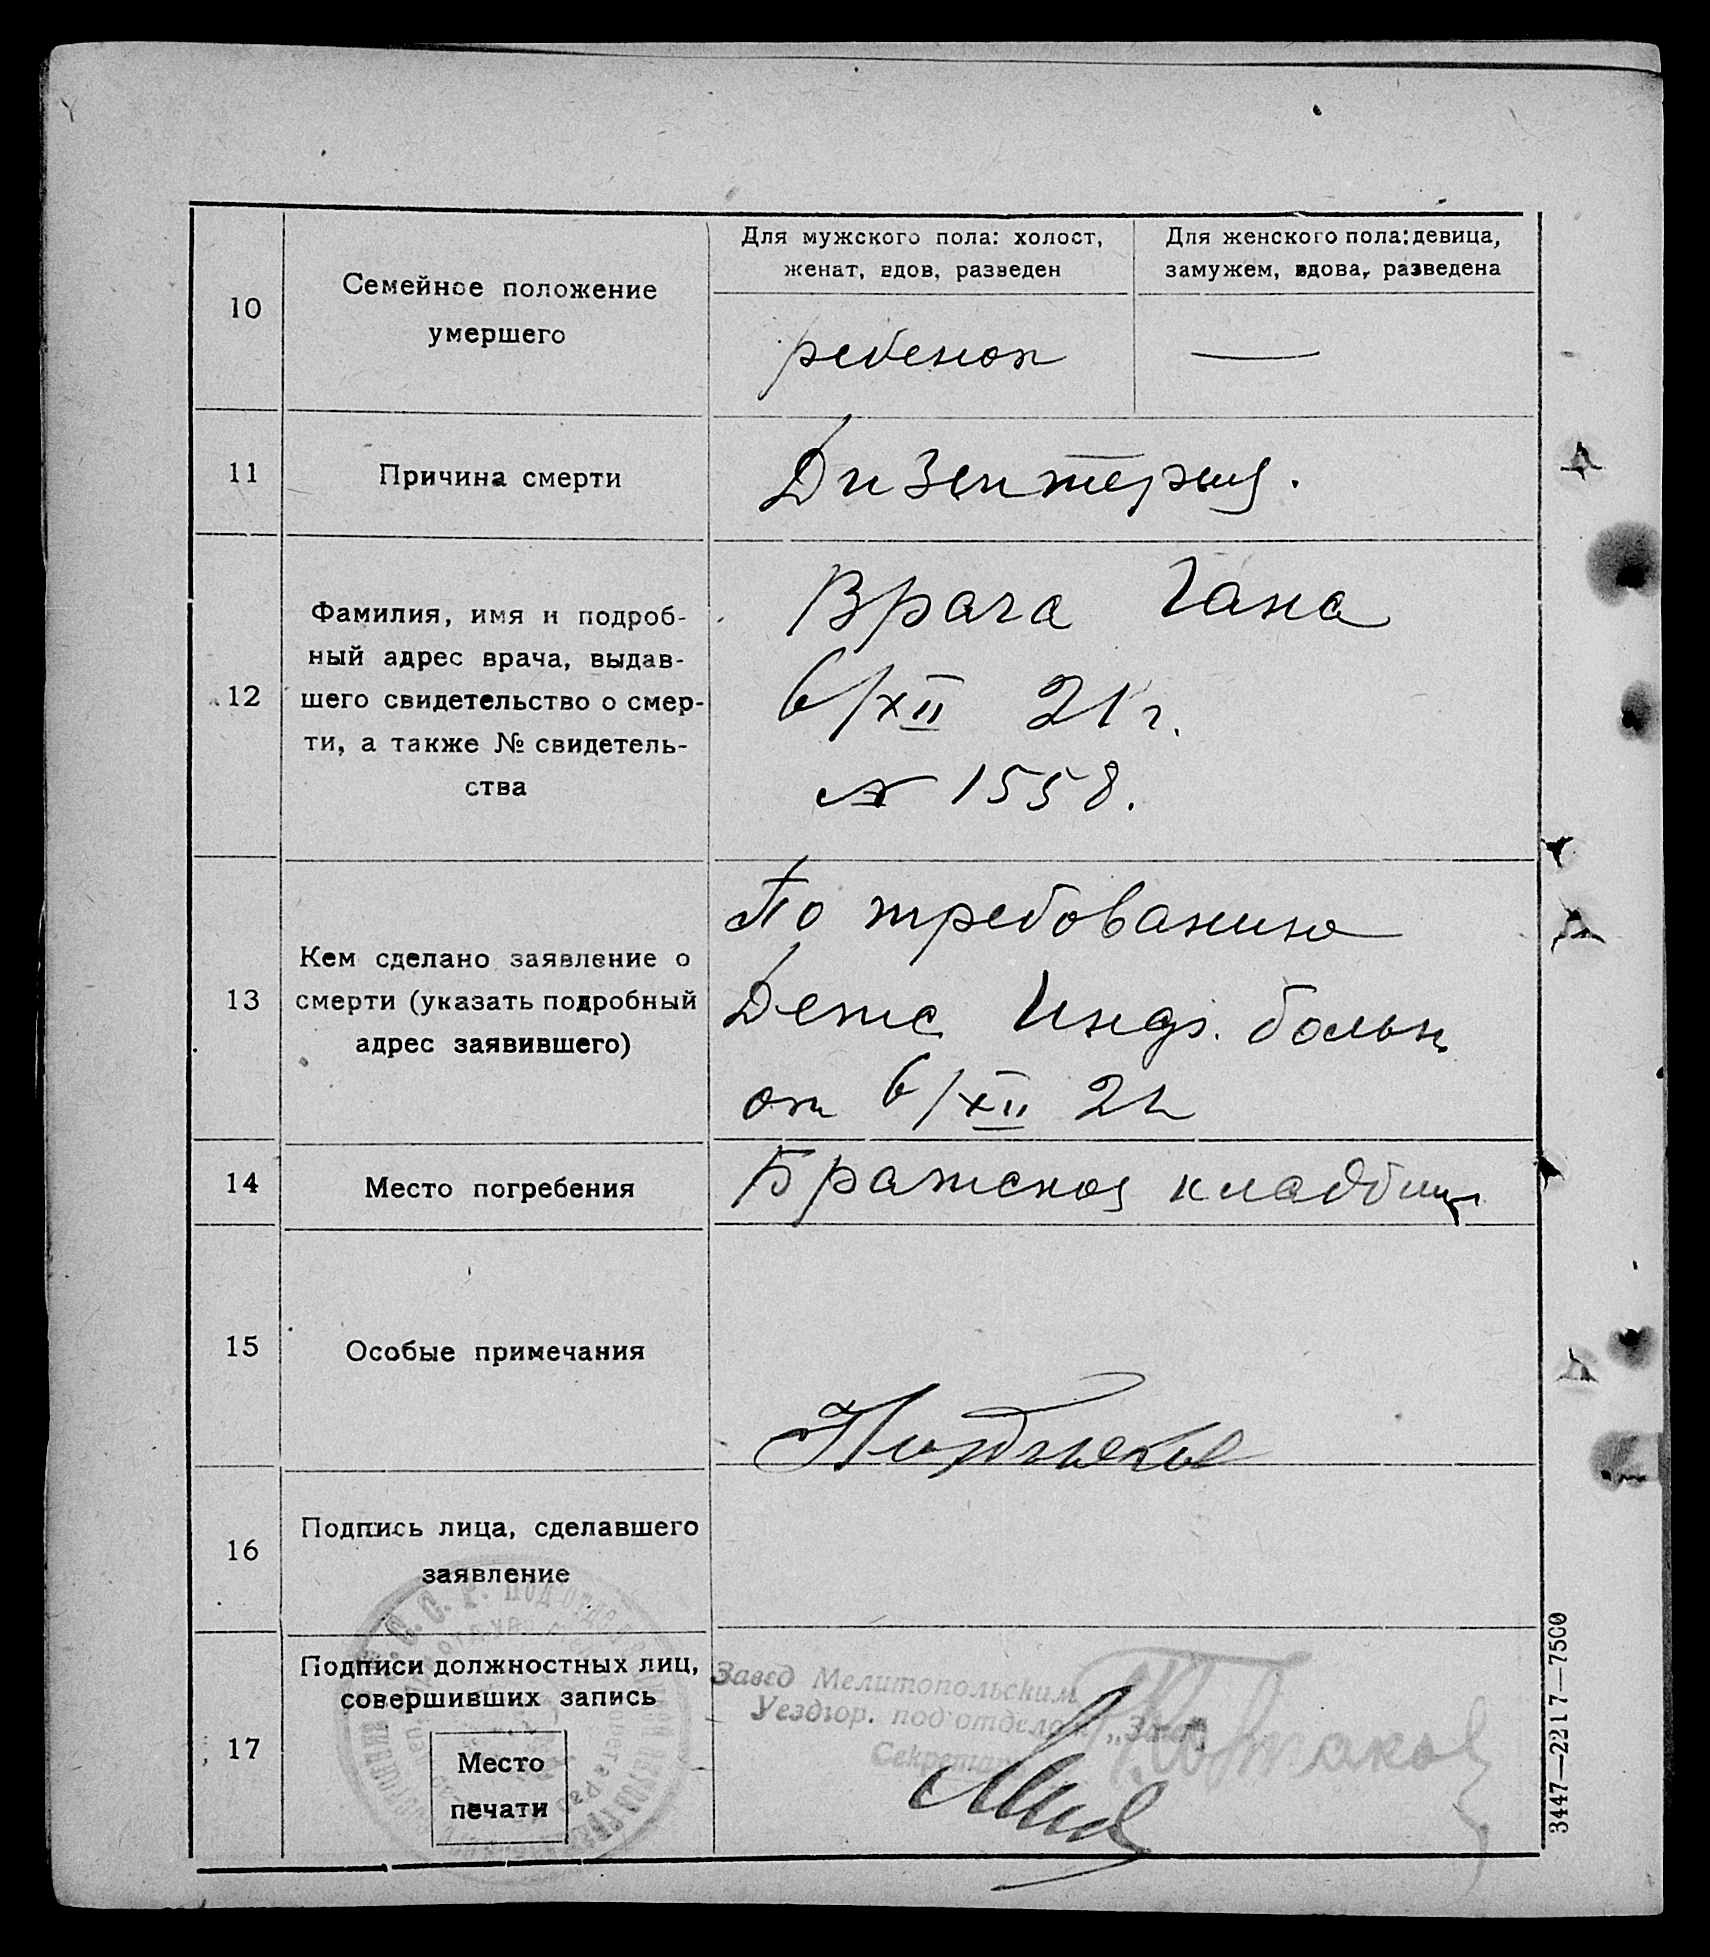 10
Семейное положение
умершего
Для мужского пола: холост,
женат, вдов, разведен
Для женского пола: девица,
замужем, вдова, разведена
ребенок
—
11
Причина смерти
Дизентерия.
12
Фамилия, имя и подроб-
ный адрес врача, выдав-
шего свидетельство о смер-
ти, а также № свидетель-
ства
Врача Гана
6/XII 21 г.
№ 1558.
13
Кем сделано заявление о
смерти (указать подробный
адрес заявившего)
По требованию
Детс Инф. больн.
от 6/XII 21
14
Место погребения
Братское кладбище
15
Особые примечания
16
Подпись лица, сделавшего
заявление
17
Подписи должностных лиц,
совершивших запись
Место
печати
Завед Мелитопольским
Уездгор. под'отделом „Загс"
Секретарь
3447—2217—7500